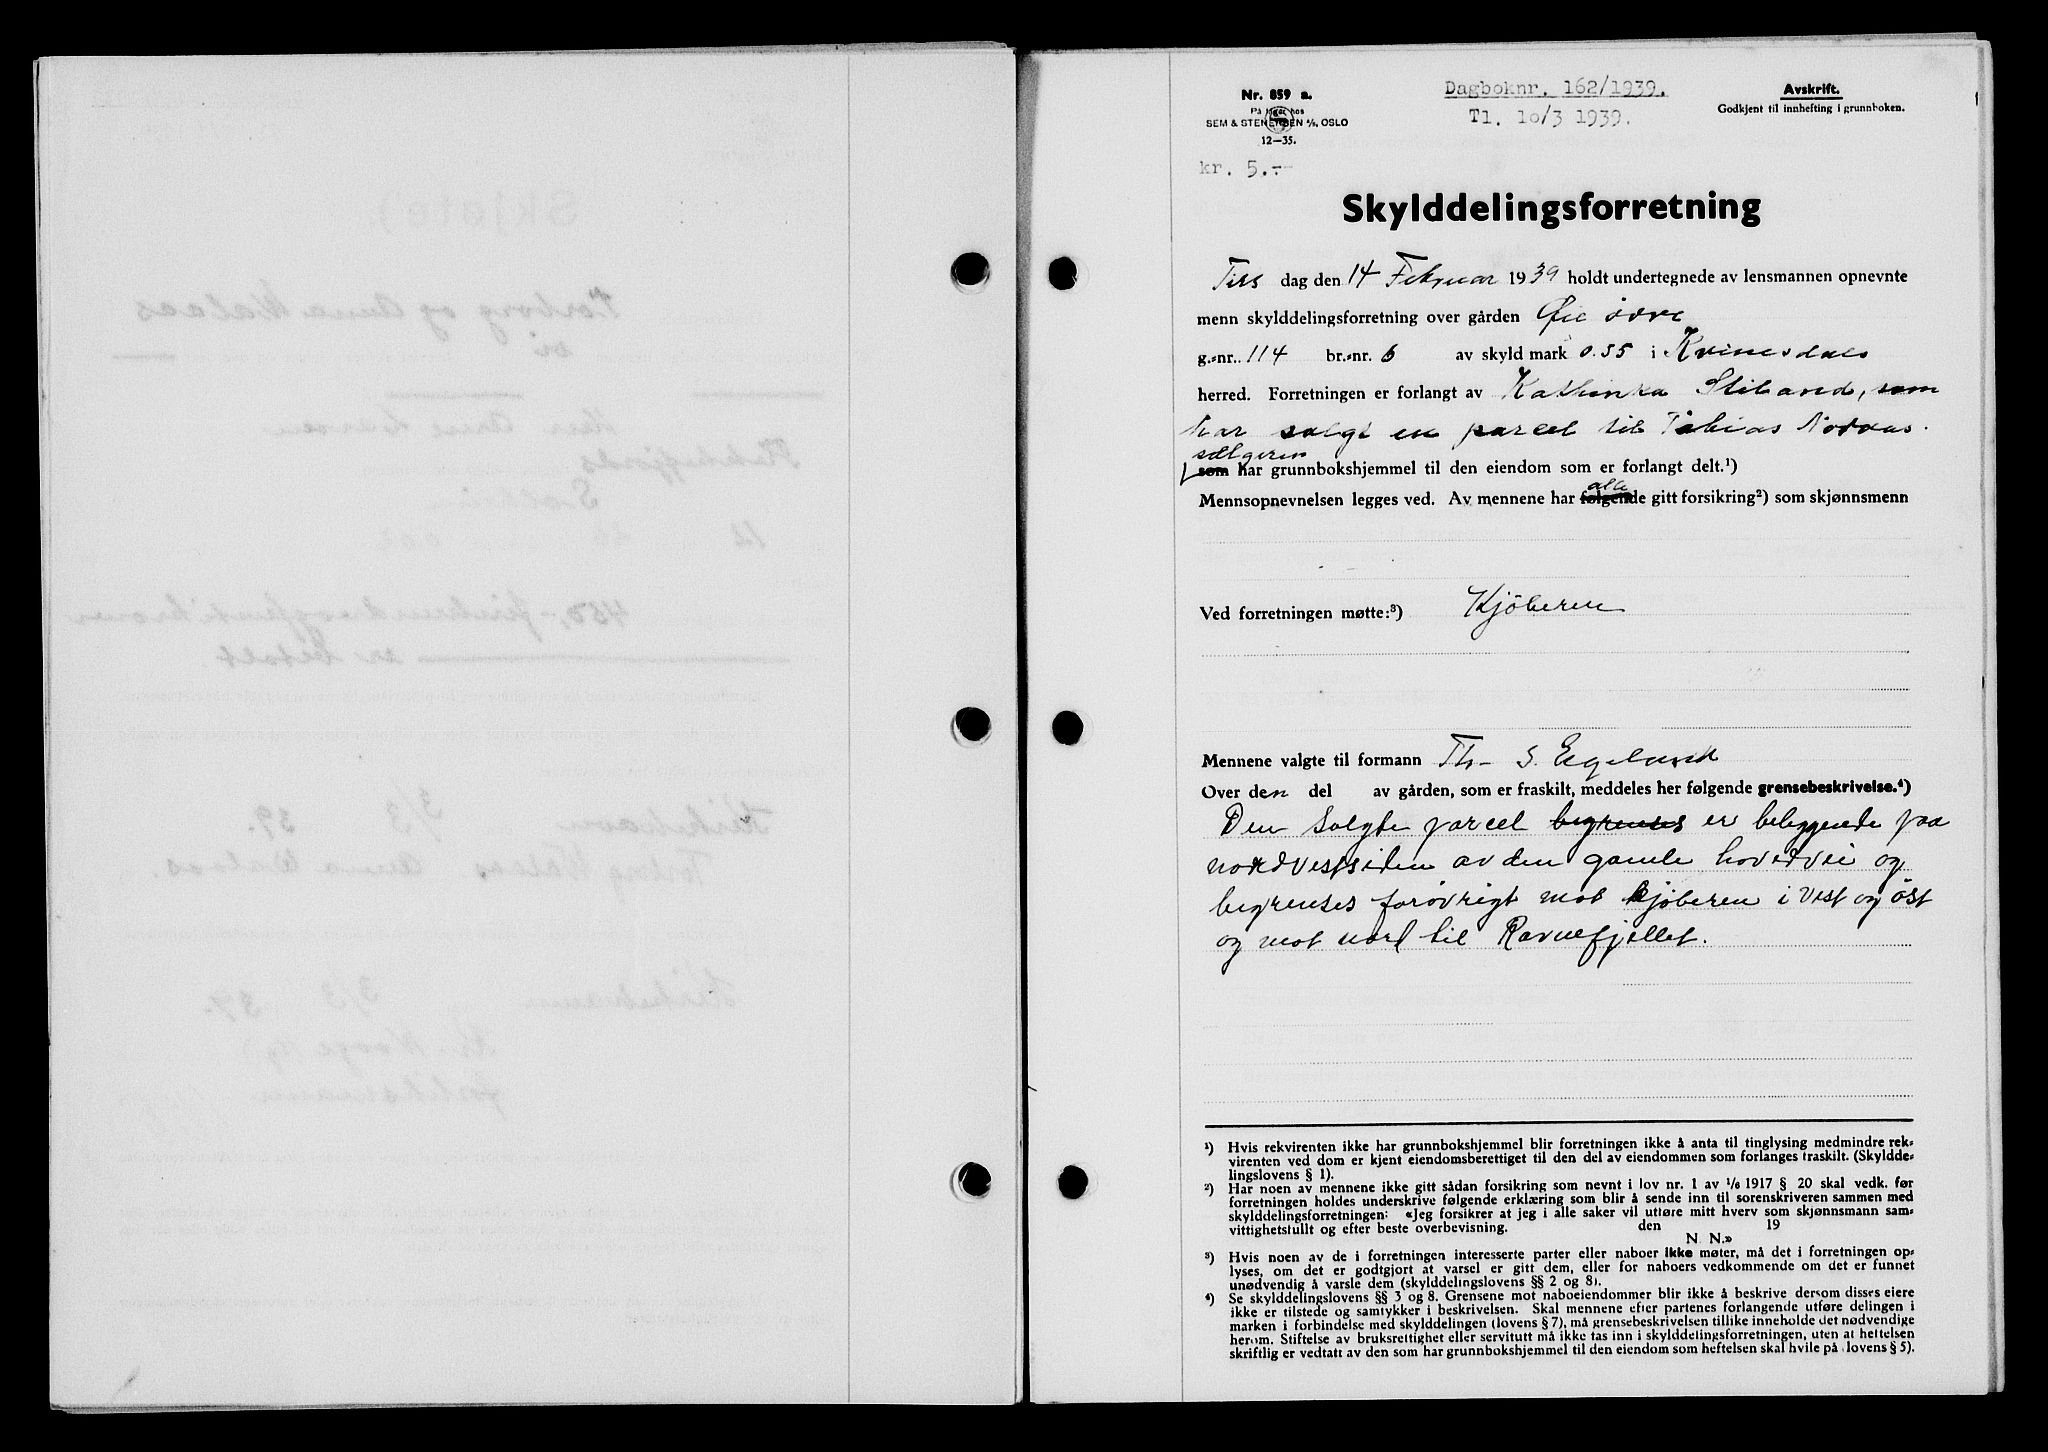 Nr. 859 a.
På lager hos
SEM & STENERSEN A/S, OSLO
12—35.
Dagboknr. 162/1939.
Tl. 10/3 1939.
Avskrift.
Godkjent til innhefting i grunnboken.
kr. 5.--
Skylddelingsforretning
Tirs dag den 14 Februar 1939 holdt undertegnede av lensmannen opnevnte
menn skylddelingsforretning over gården Øie övre
g.-nr. 114 br.-nr. 6 av skyld mark 0.55 i Kvinesdals
herred. Forretningen er forlangt av Kathinka Stiland, som
har solgt en parcel til Tobias Nordaas.
sælgeren
som har grunnbokshjemmel til den eiendom som er forlangt delt.¹)
alle
Mennsopnevnelsen legges ved. Av mennene har følgende gitt forsikring²) som skjønnsmenn
Ved forretningen møtte:³) Kjöberen
Mennene valgte til formann Th. S. Egeland
Over den del av gården, som er fraskilt, meddeles her følgende grensebeskrivelse.⁴)
Den solgte parcel begrenses er beliggende paa
nordvestsiden av den gamle hovedvei og
begrenses forövrigt mot kjöberen i vest og öst
og mot nord til Ravnefjellet.
¹) Hvis rekvirenten ikke har grunnbokshjemmel blir forretningen ikke å anta til tinglysing medmindre rek-
virenten ved dom er kjent eiendomsberettiget til den del av eiendommen som forlanges fraskilt. (Skyldde-
lingslovens § 1).
²) Har noen av mennene ikke gitt sådan forsikring som nevnt i lov nr. 1 av 1/6 1917 § 20 skal vedk. før
forretningen holdes underskrive følgende erklæring som blir å sende inn til sorenskriveren sammen med
skylddelingsforretningen: «Jeg forsikrer at jeg i alle saker vil utføre mitt hverv som skjønnsmann sam-
vittighetsfullt og efter beste overbevisning. den 19
N. N.»
³) Hvis noen av de i forretningen interesserte parter eller naboer ikke møter, må det i forretningen op-
lyses, om det er godtgjort at varsel er gitt dem, eller for naboers vedkommende om det er funnet
unødvendig å varsle dem (skylddelingslovens §§ 2 og 8).
⁴) Se skylddelingslovens §§ 3 og 8. Grensene mot naboeiendommer blir ikke å beskrive dersom disses eiere
ikke er tilstede og samtykker i beskrivelsen. Skal mennene efter partenes forlangende utføre delingen i
marken i forbindelse med skylddelingen (lovens § 7), må grensebeskrivelsen tillike inneholde det nødvendige
herom. Stiftelse av bruksrettighet eller servitutt må ikke tas inn i skylddelingsforretningen, uten at heftelsen
skriftlig er vedtatt av den som har grunnbokshjemmel til den eiendom som heftelsen skal hvile på (lovens § 5).